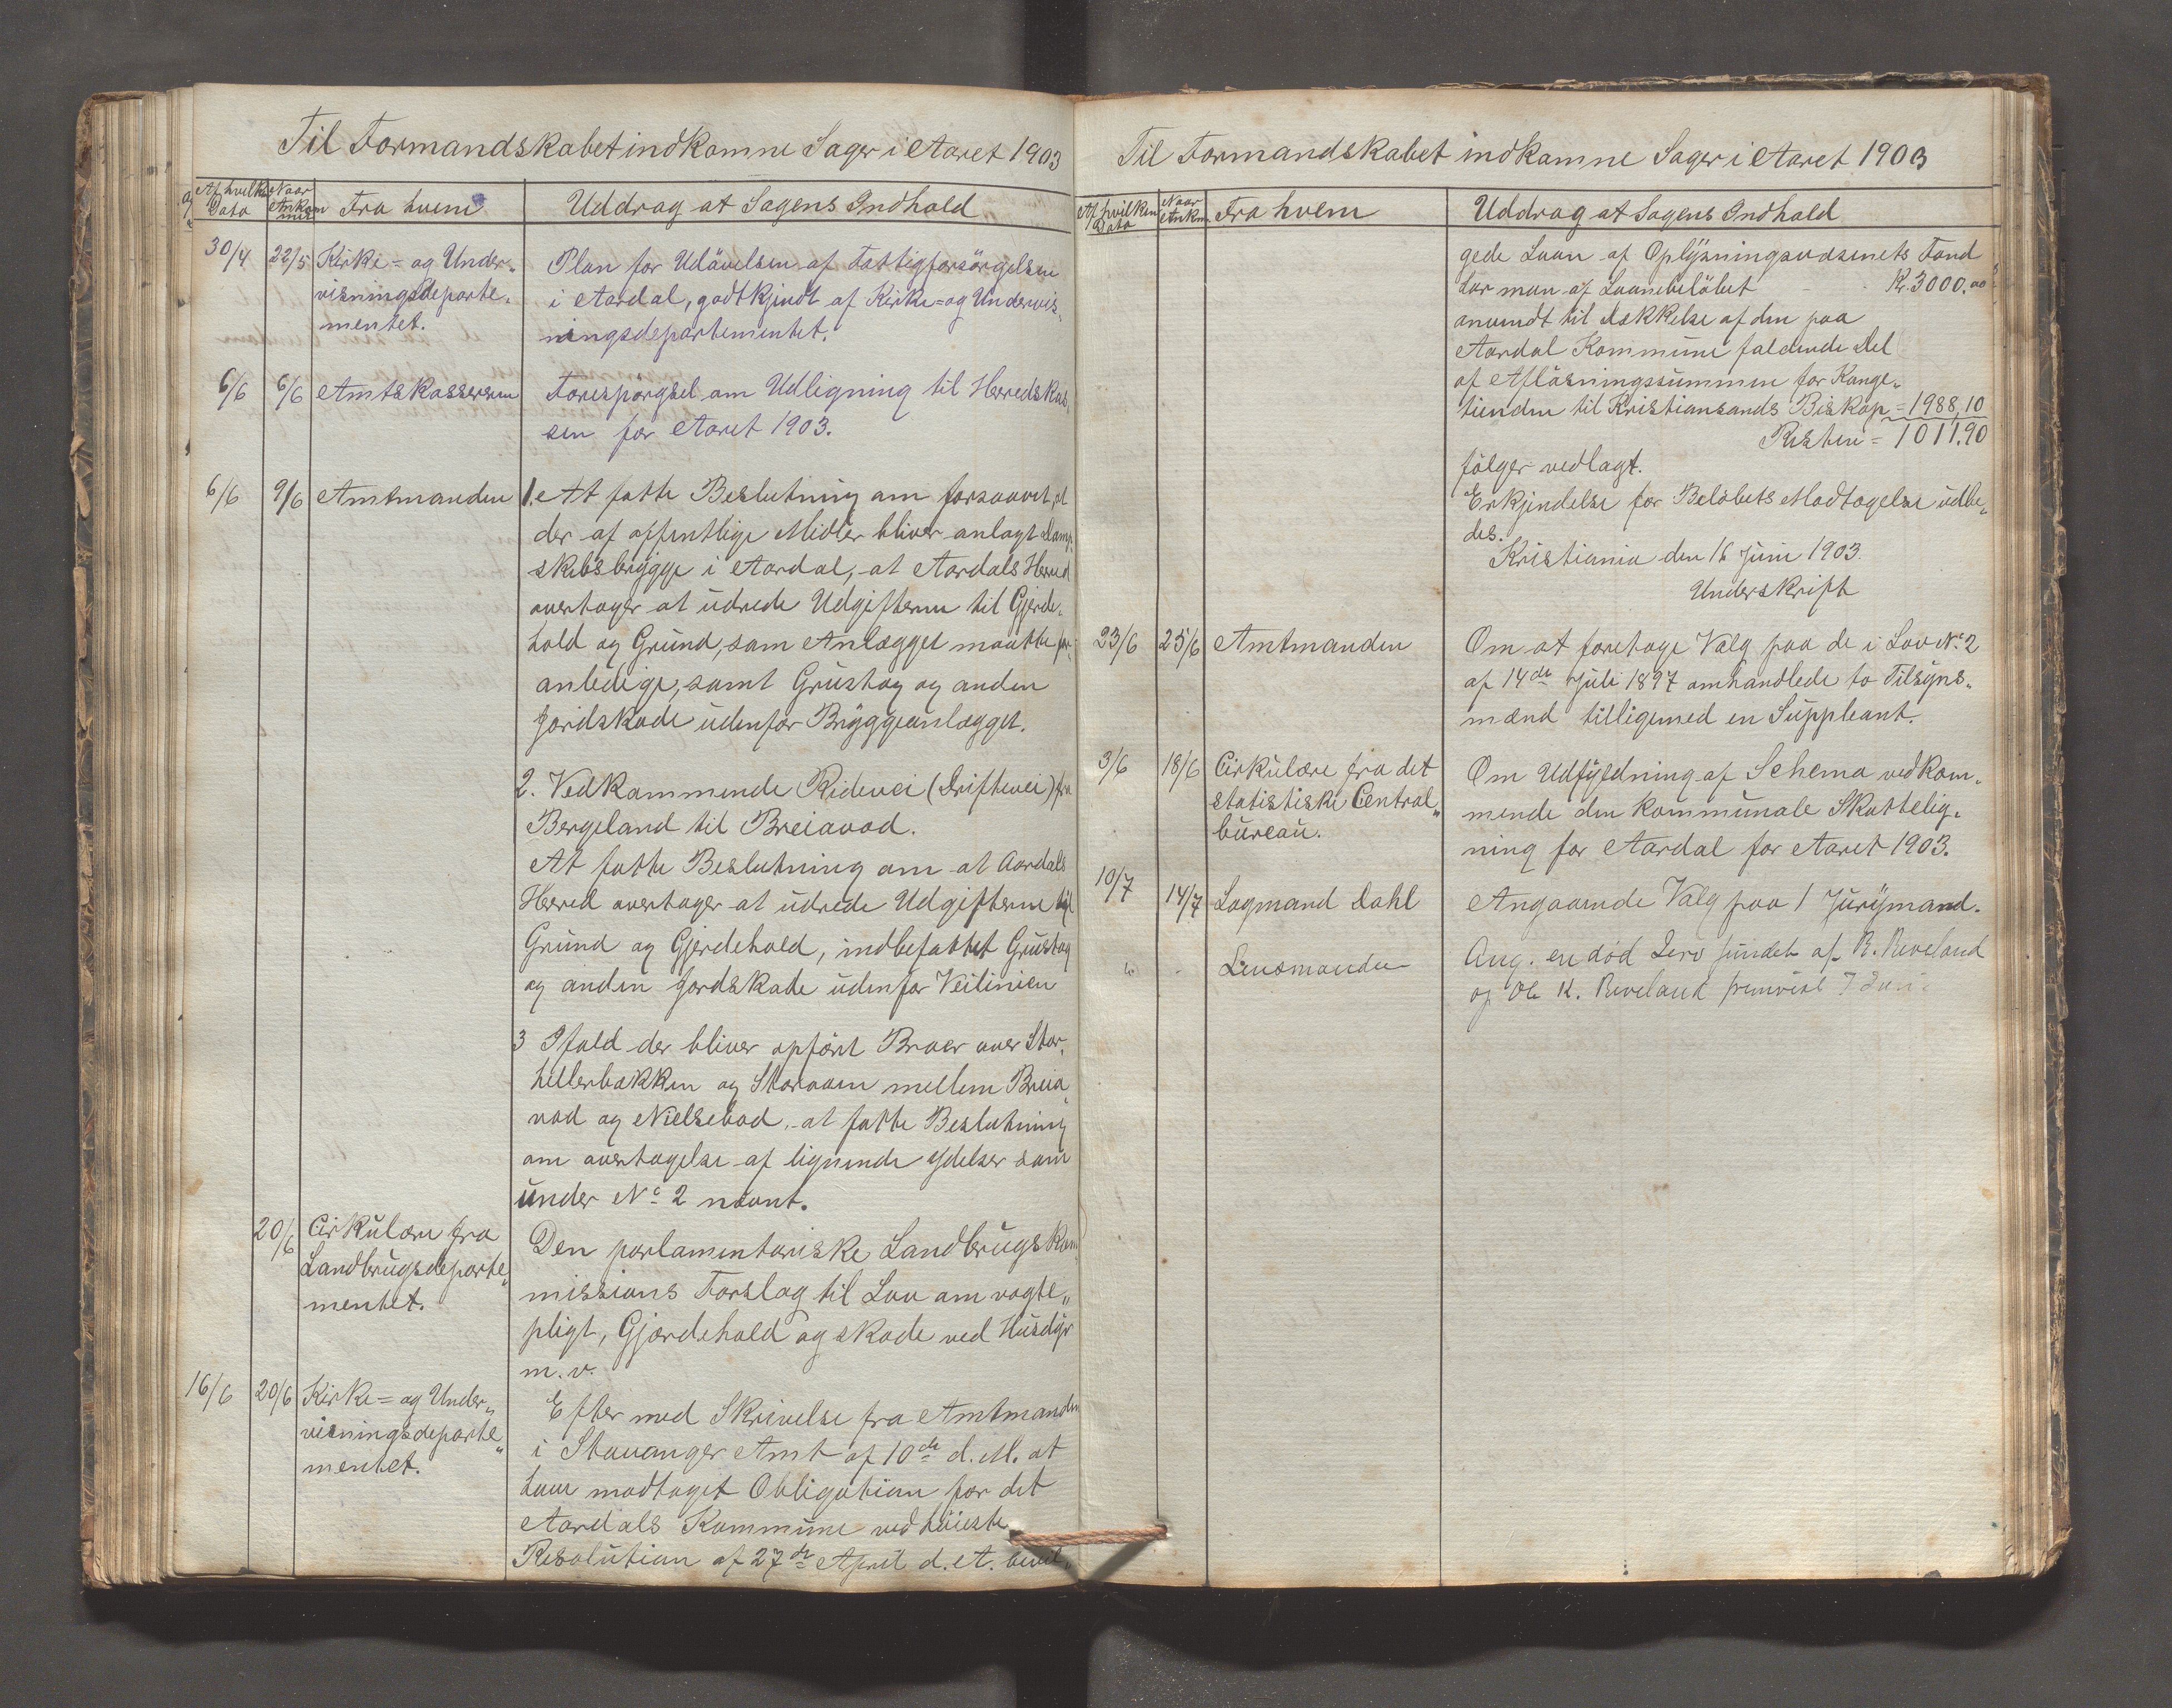 Til Formandskabet indkomne Sager i Aaret 1903
Af hvilken Dato
Naar Ankommet
Fra hvem
Uddrag at Sagens Indhold
30/4 22/5 Kirke= og Under„
visningsdeparte„
mentet.
Plan for Udövelsen af Fattigforsörgelsen
i Aardal, godtkjendt af Kirke= og Undervis„
ningsdepartementet.
6/6 6/6 Amtskassereren
Forespörgsel om Udligning til Herredskas„
sen for Aaret 1903.
6/6 9/6 Amtmanden
1. At fatte Beslutning om forsaavit, at
der af offentlige Midler bliver anlagt Damp„
skibsbrygge i Aardal, at Aardals Herred
overtager at udrede Udgifterne til Gjerde„
hold og Grund, som Anlægget maatte for„
anledige, samt Grustag og anden
Jordskade udenfor Bryggeanlægget.
2. Vedkommende Ridevei (Driftevei) fra
Bergeland til Breiavad.
At fatte Beslutning om at Aardals
Herred overtager at udrede Udgifterne til
Grund og Gjerdehold, indbefattet Grustag
og anden Jordskade udenfor Veilinien
3 Ifald der bliver opfört Broer over Stor„
hellerbækken og Storaaen mellem Breia„
vad og Nielsebod, at fatte Beslutning
om overtagelse af lignende ydelser som
under No 2 nævnt.
20/6 Cirkulære fra
Landbrugsdeparte„
mentet.
Den parlamentariske Landbrugskom„
missions Forslag til Lov om vogte„
pligt, Gjærdehold og skade ved Husdyr
m. v.
16/6 20/6 Kirke= og Under„
visningsdeparte„
mentet.
Efter med Skrivelse fra Amtmanden
i Stavanger Amt af 10de d. M. at
have modtaget Obligation for det
Aardals Kommune ved höieste
Resolution af 27de April d. A. bevil„
Til Formandskabet indkomne Sager i Aaret 1903
Af hvilken Dato
Naar Ankm.
Fra hvem
Uddrag at Sagens Indhold
gede Laan af Oplysningsvæsenets Fond
har man af Laanebelöbet Kr. 3000.00
anvendt til Dækkelse af den paa
Aardal Kommune faldende Del
af Aflösningssummen for Konge„
tienden til Kristiansands Biskop = 1988,10
Resten = 1011.90
fölger vedlagt.
Erkjendelse for Belöbets Modtagelse udbe„
des.
Kristiania den 16 Juni 1903.
Underskrift
23/6 25/6 Amtmanden
Om at foretage Valg paa de i Lov No 2
af 14de Juli 1897 omhandlede to Tilsyns„
mænd tilligemed en Suppleant.
3/6 18/6 Cirkulære fra det
statistiske Central„
bureau.
Om Udfyldning af Schema vedkom„
mende den kommunale Skattelig„
ning for Aardal for Aaret 1903.
10/7 14/7 Lagmand Dahl
Angaaende Valg paa 1 Jurymand.
Lensmanden
Ang. en död fundet af R. Riveland
og Ole K. Riveland